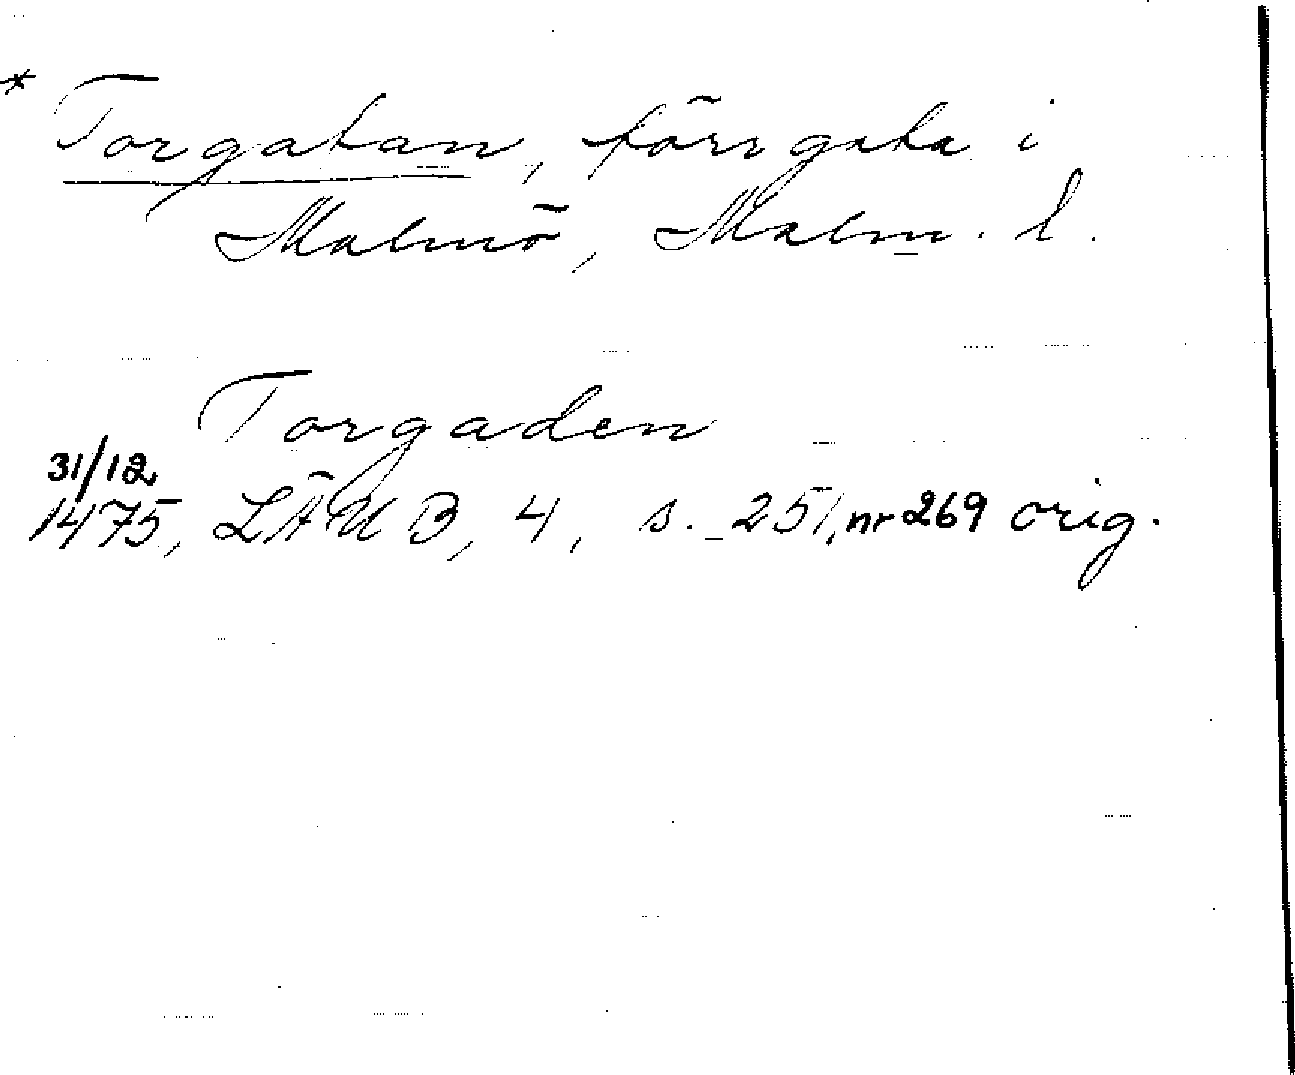 * Torgatan, förr gata i
Malmö, Malm. l.
Torgaden
31/12
1475, LÄUB, 4, s. 251, nr 269 orig.